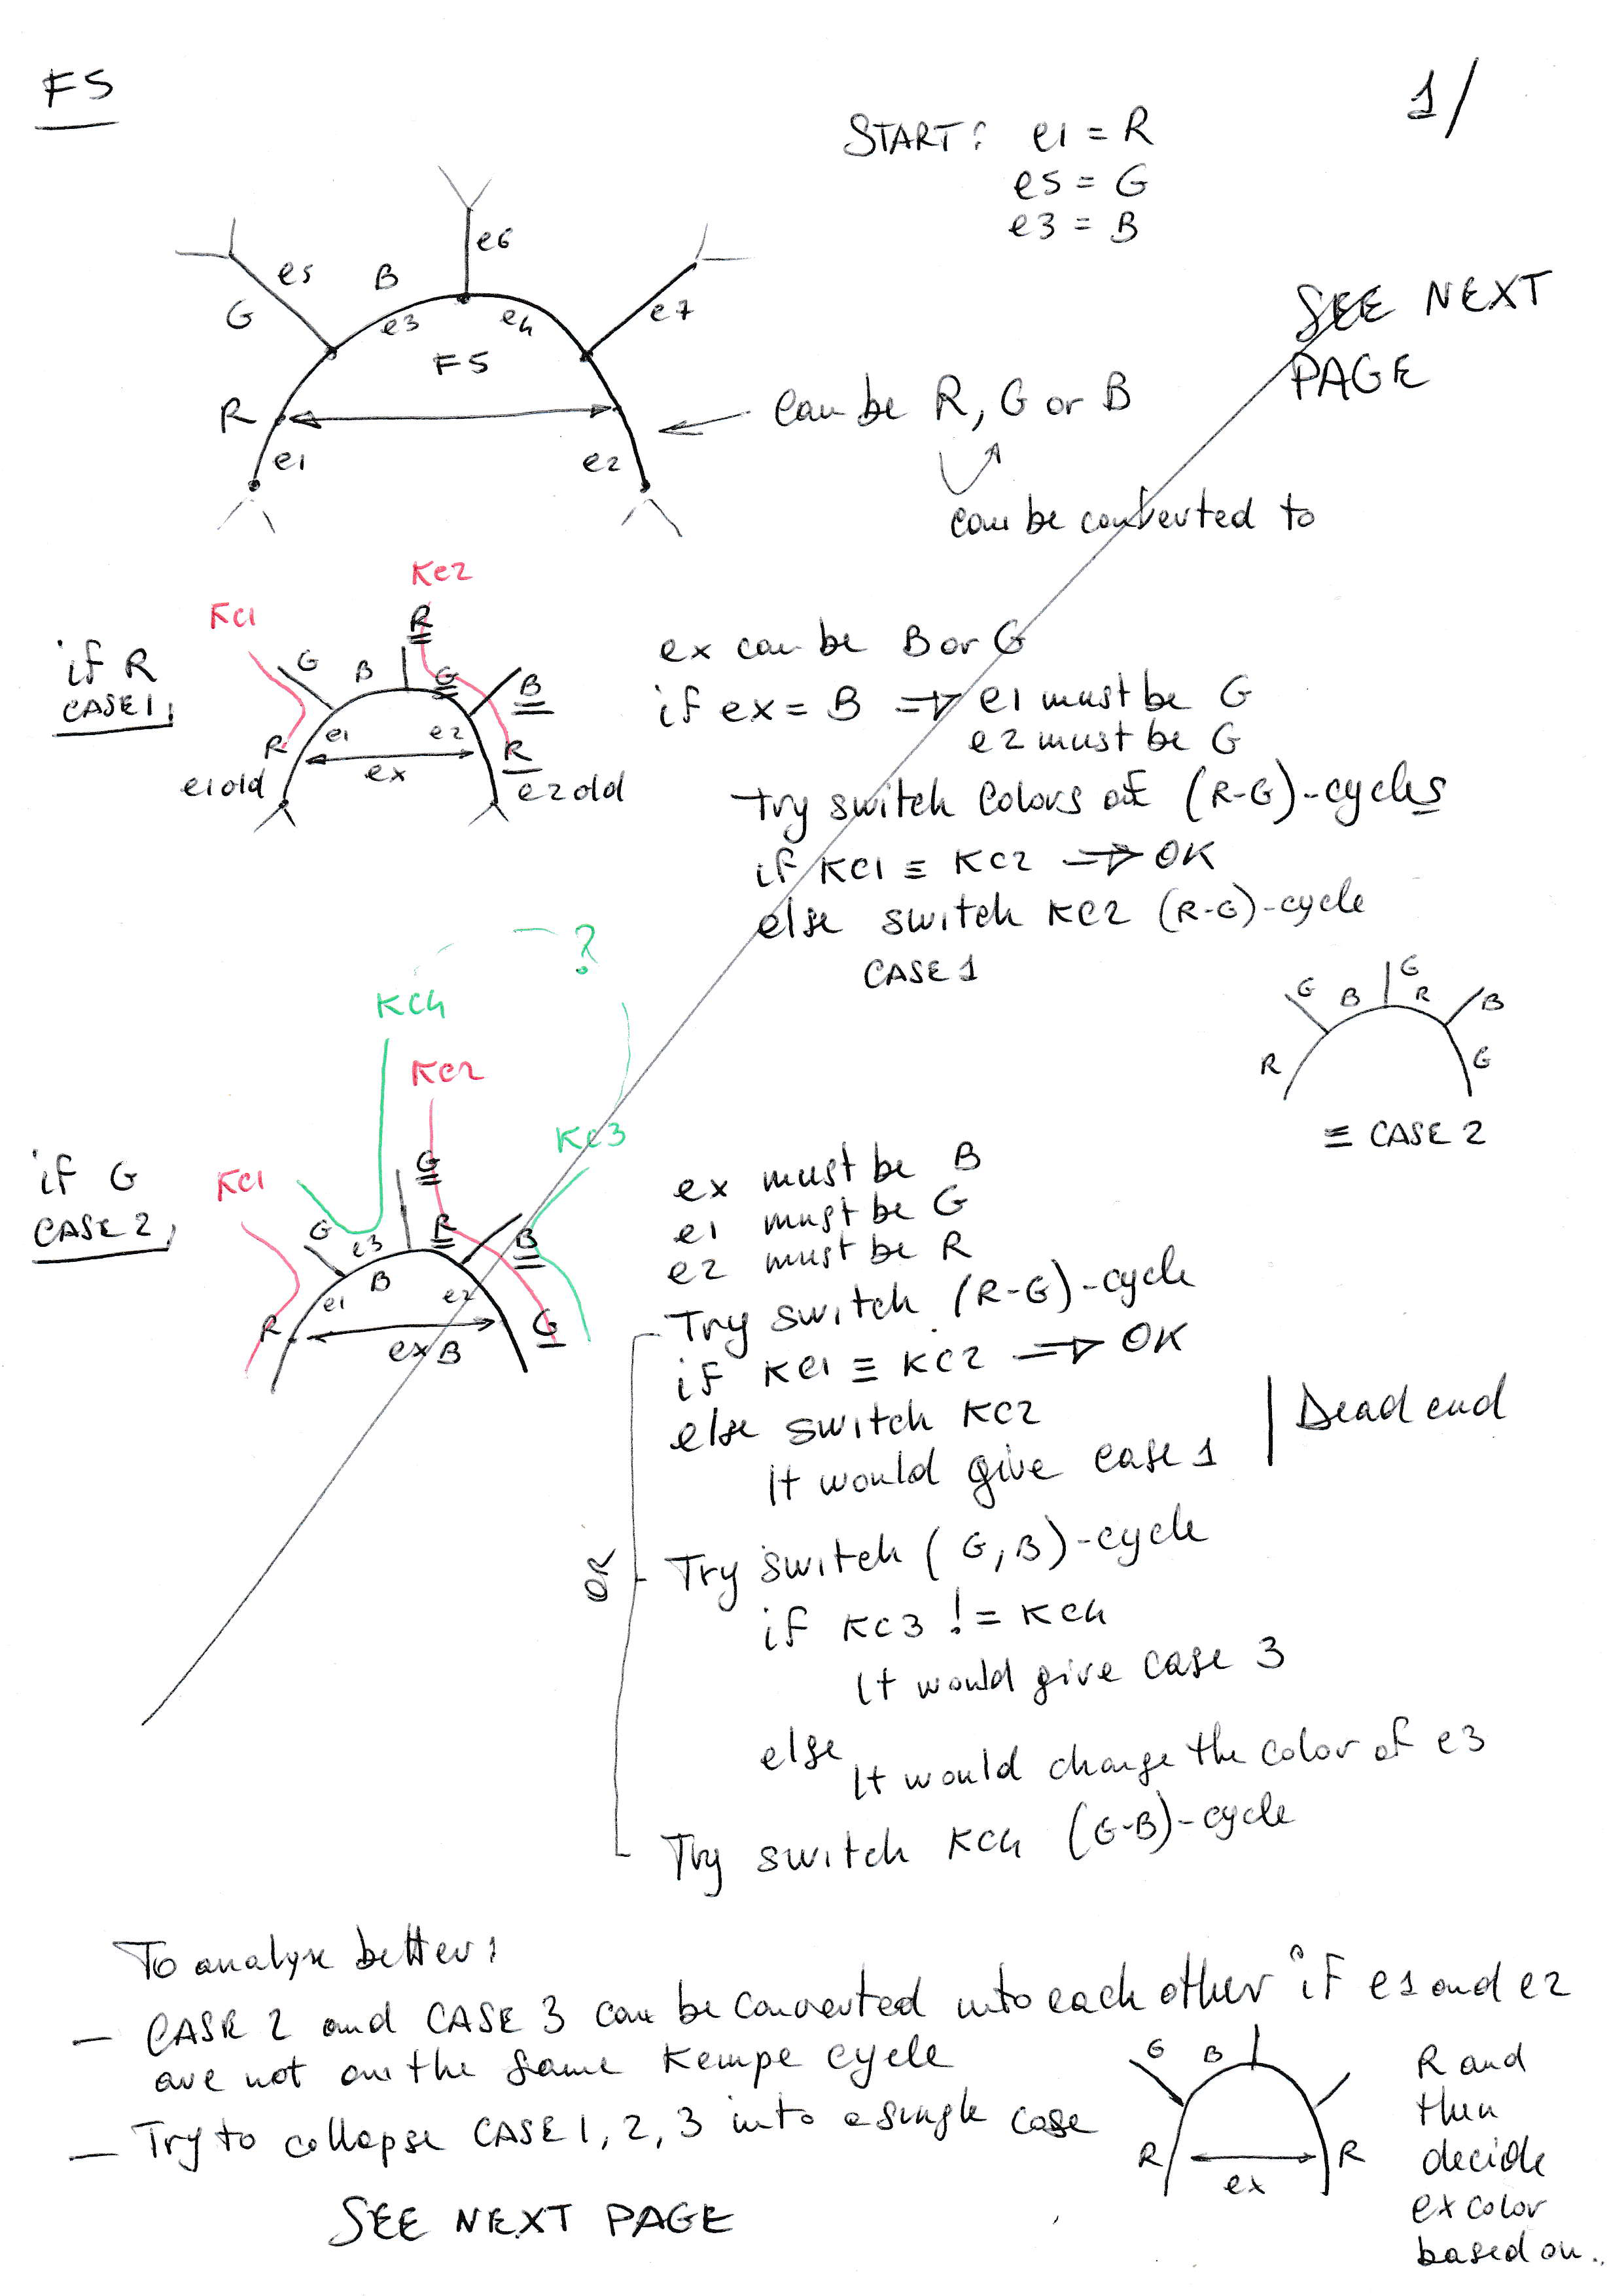 F5
1/
START: e1 = R
e5 = G
e3 = B
e6
e5 B
G e3 e4 e7
F5
R
e1 e2
can be R, G or B
can be converted to
SEE NEXT
PAGE
if R
CASE 1,
KC1
KC2
R
G B G B
R e1 e2 R
e1old ex e2old
ex can be B or G
if ex = B => e1 must be G
e2 must be G
Try switch colors of (R-G)-cycles
if KC1 ≡ KC2 => OK
else switch KC2 (R-G)-cycle
CASE 1
G B G R B
R G
≡ CASE 2
if G
CASE 2,
?
KC4
KC2
KC1
KC3
G
G e3 R B
B
R e1 e2 G
ex B
ex must be B
e1 must be G
e2 must be R
Try switch (R-G)-cycle
if KC1 ≡ KC2 => OK
else switch KC2
It would give case 1
Dead end
OR
Try switch (G,B)-cycle
if KC3 != KC4
It would give case 3
else
It would change the color of e3
Try switch KC4 (G-B)-cycle
To analyse better:
- CASE 2 and CASE 3 can be converted into each other if e1 and e2
are not on the same Kempe cycle
- Try to collapse CASE 1, 2, 3 into a single case
G B
R ex R
R and
then
decide
ex color
based on..
SEE NEXT PAGE